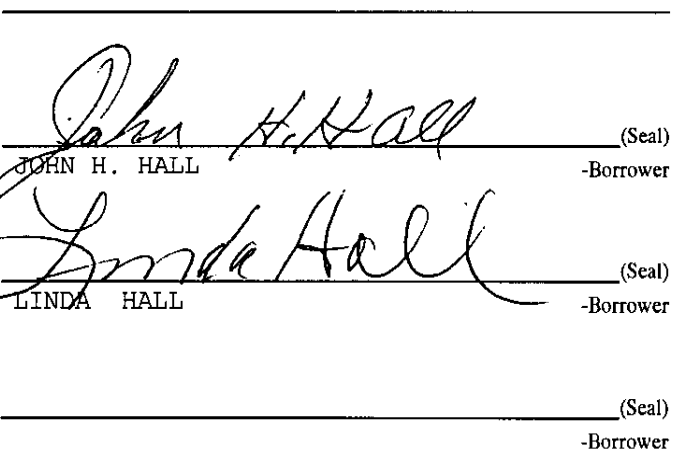 John H. Hall (Seal)
JOHN H. HALL -Borrower
Linda Hall (Seal)
LINDA HALL -Borrower
(Seal)
-Borrower